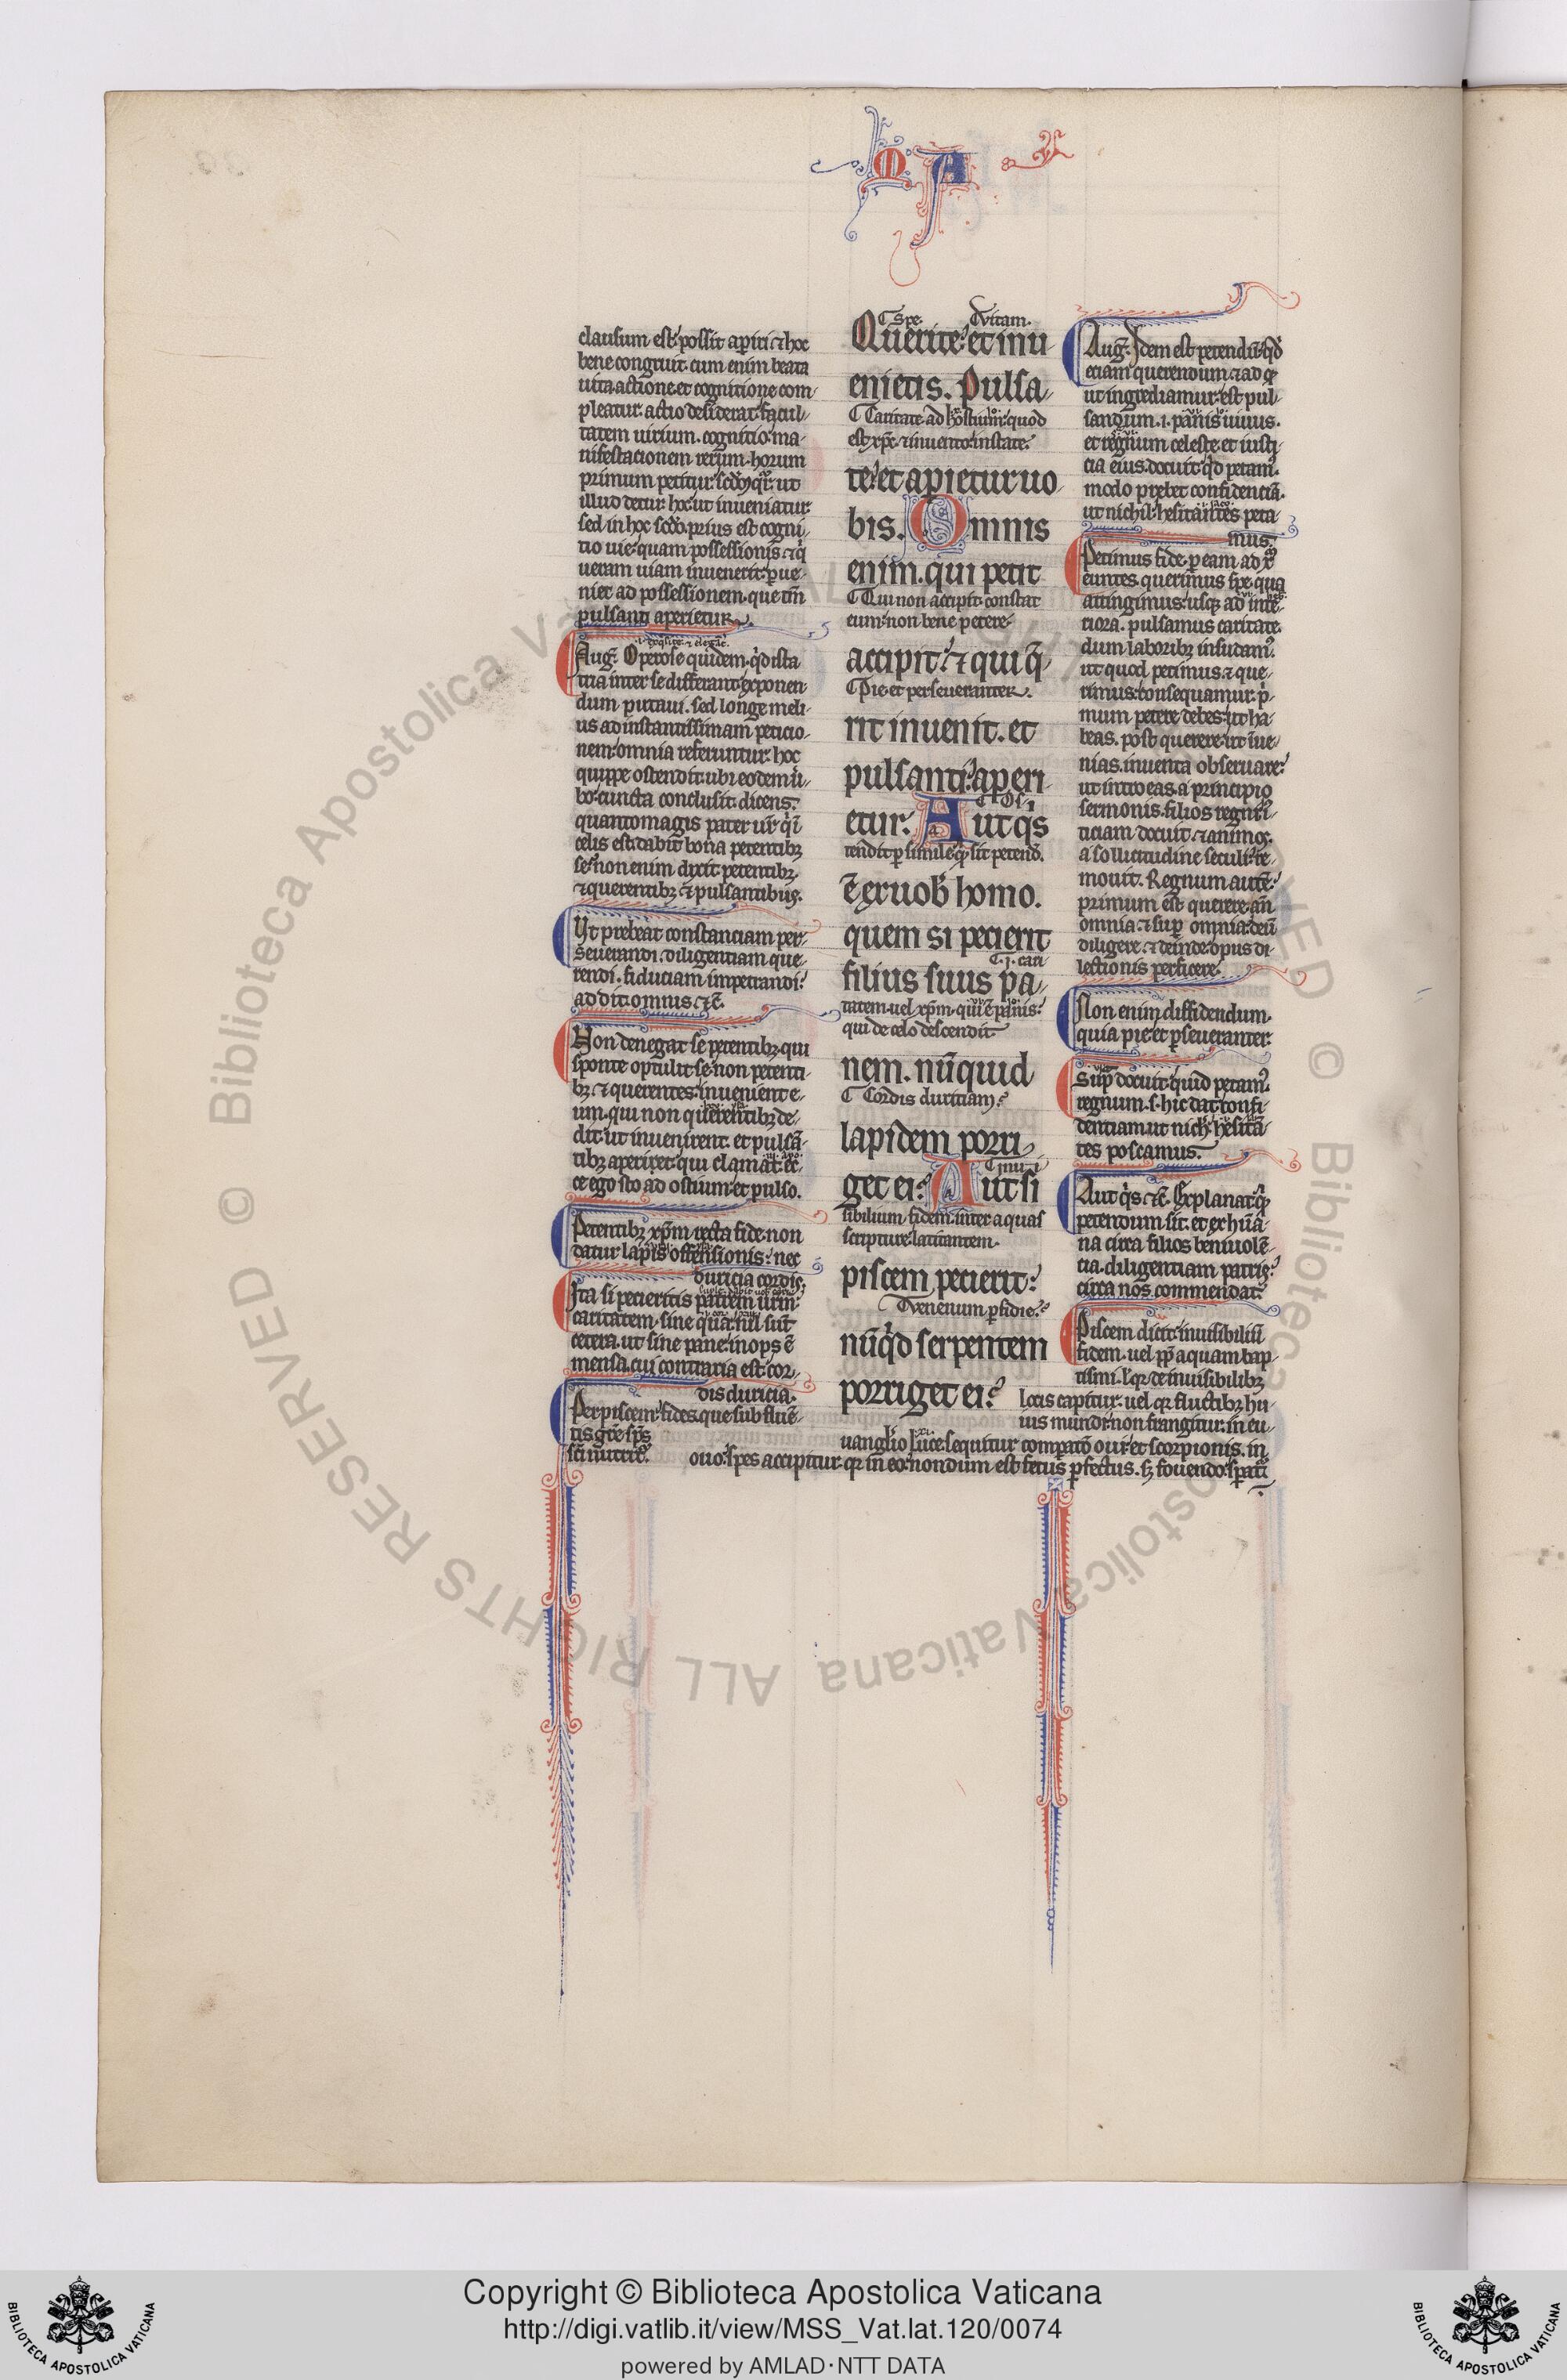 M A
clausum est: possit aperiri. ⁊ hoc
bene congruit. cum enim beata
uita actione et cognitione com-
pleatur. actio desiderat facul-
tatem uirium. cognitio: ma-
nifestacionem rerum. horum
primum petitur. scđm q̄rit̄. ut
illud detur. hoc ut inueniatur.
sed in hoc scđo. prius est cogni-
tio uie: quam possessionis. ⁊ q̇
ueram uiam inuenerit: ꝑue-
niet ad possessionem. que tm̄
pulsanti aperietur.
Auḡ. Operose quidem. q̇d ista
tria inter se differant: exponen-
dum putaui. sed longe meli-
us ad instantissimam peticio-
nem: omnia referuntur. hoc
quippe ostendit: ubi eodem ū-
bo: cuncta conclusit. dicens.
quantomagis pater ur̄ q̇ ī
celis est: dabit bona petentibꝫ
se. non enim dixit petentibꝫ.
⁊ querentibꝫ ⁊ pulsantibus.
Ut prebeat constanciam per-
seuerandi. diligentiam que-
rendi. fiduciam impetrandi:
addit. omnis. ⁊c̄.
Non denegat se petentibꝫ. qui
sponte optulit se non petenti-
bꝫ. ⁊ querentes: inuenient e-
um. qui non querentibꝫ de-
dit: ut inuenirent. et pulsā-
tibꝫ aperiret: qui clamat. ec-
ce ego sto ad ostium: et pulso.
Petentibꝫ xp̄m recta fide: non
datur lapis offensionis: nec
duricia cordis.
Ita si pecieritis patrem urm̄:
caritatem. sine qua: nil sūt
cetera. ut sine pane: inops ē
mensa. cui contraria est: cor-
dis duricia.
Per piscem: fides. que sub fluē-
tis gr̄e sp̄s
sc̄i nutrit̄.
Spe. Vitam.
Querite: et inu
enietis. Pulsa-
Caritate. ad hostium: quod
est xp̄c. ⁊ inuento: instate.
te: et aperietur uo-
bis. Omnis
enim. qui petit
Qui non accipit: constat
eum: non bene petere.
accipit: ⁊ qui q̄-
Pie: et perseueranter.
rit inuenit. et
pulsanti: aperi
etur. Aut q̇s
Os-
tendit ꝑ simile: q̇ sit petend̄.
ē ex uob̄ homo.
quem si pecierit
.i. cari-
filius suus pa-
tatem. uel xp̄m. qui ē panis:
qui de celo descendit
nem. nūquid
Cordis duritiam:
lapidem porri-
get ei: Aut si
inui-
sibilium fidem: inter aquas
scripture: latitantem.
piscem pecierit:
Venenum ꝑfidie:
nūq̇d serpentem
porriget ei:
Auḡ. Idem est petendū: q̇d
eciam querendum. ⁊ ad q̇
ut ingrediamur: est pul-
sandum. .i. panis uiuus.
et regnum celeste: et iusti-
cia eius. docuit q̇d petam᷒.
modo prebet confidenciā.
ut nichil: hesitantes peta-
mus.
Petimus fide. ꝑ eam ad x̄
euntes. querimus spe. qua
attingimus: usqꝫ ad inte-
riora. pulsamus caritate.
dum laboribꝫ insudam᷒.
ut quod petimus. ⁊ que-
rimus: consequamur. p̄-
mum petere debes: ut ha-
beas. post querere: ut īue-
nias. inuenta obseruare:
ut intro eas. a principio
sermonis. filios regni: ī-
ticiam docuit. ⁊ animos.
a sollicitudine seculi: re-
mouit. Regnum autē:
primum est querere: an̄
omnia. ⁊ suꝑ omnia: deū
diligere. ⁊ deinde: opus di-
lectionis perficere.
Non enim diffidendum.
quia pie: et ꝑseueranter:
Sup̄ docuit: quid petam᷒.
regnum. s. hic dat confi-
dentiam: ut nich̄. hesitā-
tes poscamus.
Aut q̇s ⁊c̄. Explanat: q̇
petendum sit. et ex hūa-
na circa filios beniuolē-
cia. diligentiam patris:
circa nos commendat.
Piscem dicit: inuisibiliū
fidem. uel pp̄ aquam bap-
tismi. ł qꝛ de inuisibilibꝫ
locis capitur. uel qꝛ fluctibꝫ hu-
ius mundi: non frangitur. in eu-
uanglio luce: sequitur comparat̄o oui: et scorpionis. in
ouo: spes accipitur. qꝛ in eo: nondum est fetus ꝑfectus. sꝫ fouendo: sꝑat̄.
Copyright © Biblioteca Apostolica Vaticana
http://digi.vatlib.it/view/MSS_Vat.lat.120/0074
powered by AMLAD·NTT DATA
BIBLIOTECA APOSTOLICA VATICANA
BIBLIOTECA APOSTOLICA VATICANA
© Biblioteca Apostolica Vaticana ALL RIGHTS RESERVED